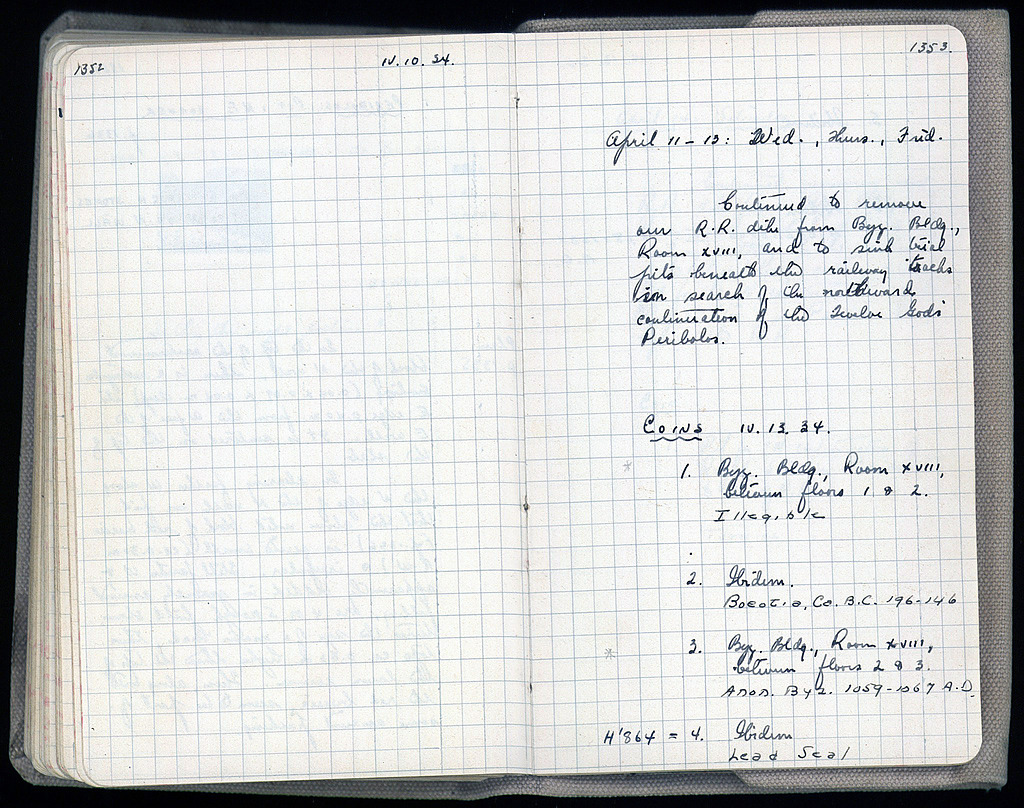 1352
IV. 10. 34.
1353.
April 11 – 13: Wed., Thurs., Frid.
Continued to remove
our R.R. dike from Byz. Bldg.,
Room XVIII, and to sink trial
pits beneath the railway tracks
in search of the northward
continuation of the Twelve Gods'
Peribolos.
Coins IV. 13. 34.
* 1. Byz. Bldg., Room XVIII,
between floors 1 & 2.
Illegible
2. Ibidem.
Boeotia, Ca. B.C. 196-146
* 3. Byz. Bldg., Room XVIII,
between floors 2 & 3.
Anon. Byz. 1059-1067 A.D.
H'864 = 4. Ibidem
Lead Seal